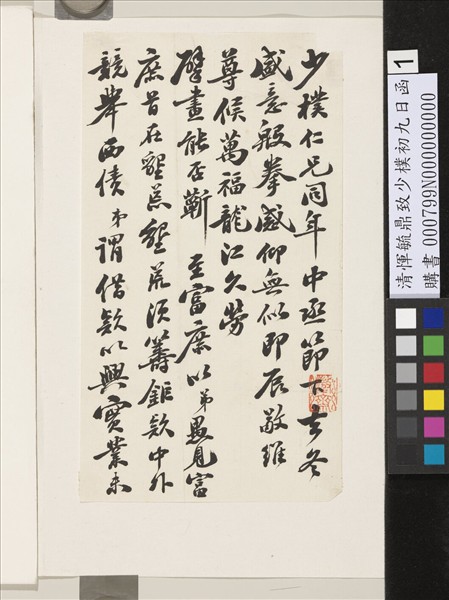 少樸仁兄同年中丞節下去冬
盛意殷拳感仰無似即辰敬維
尊候萬福龍江久勞
擘畫能否蘄至富庶以弟愚見富
庶旨在墾荒墾荒須籌鉅款中外
競舉西債弟謂借款以興實業未
1
清惲毓鼎致少樸初九日函
購書 000799N000000000